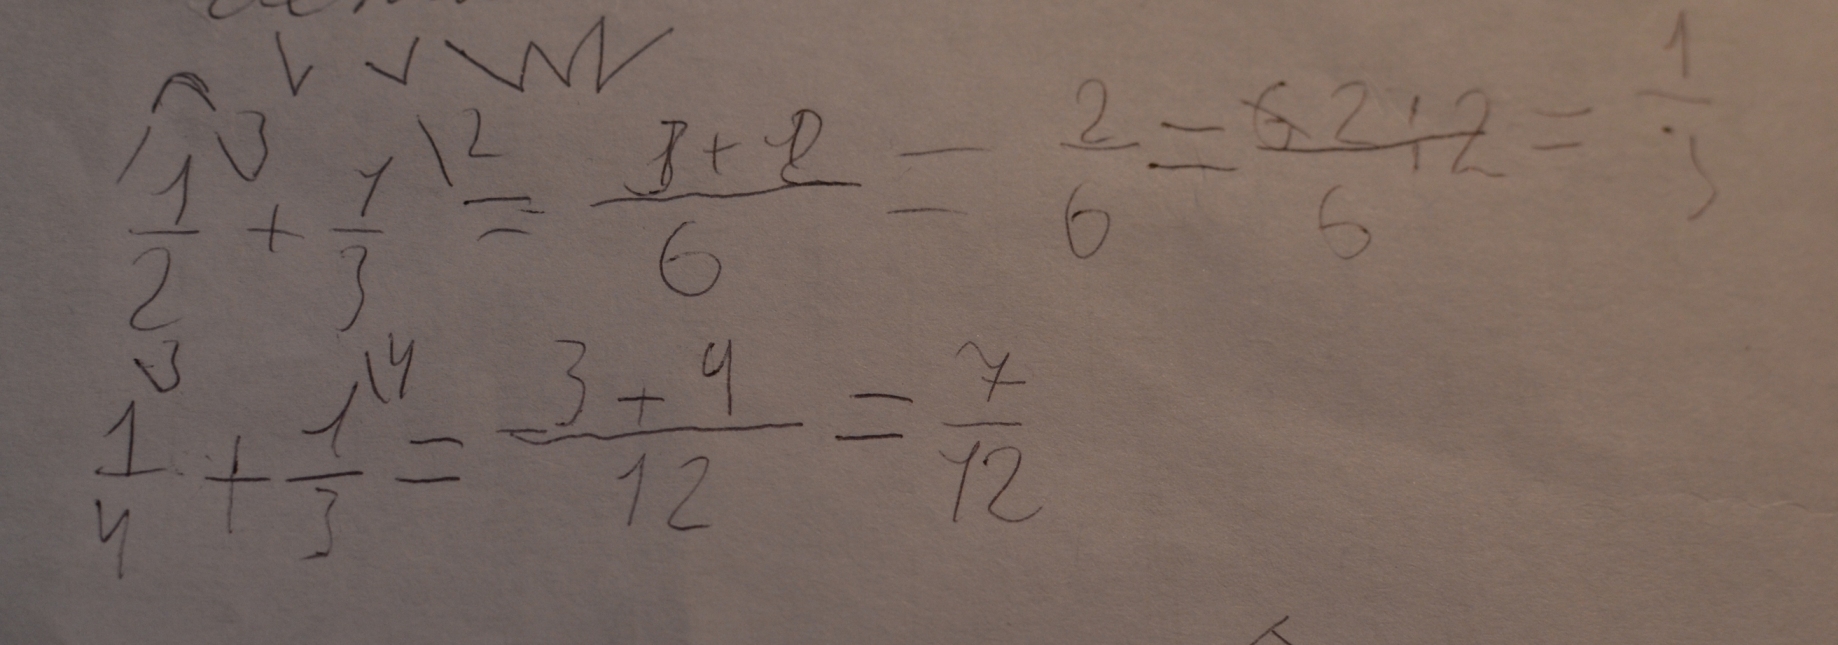 1/2 \3 + 1/3 \2 = 3+2/6 = 2/6 = 2:2/6 = 1/3
1/4 \3 + 1/3 \4 = 3+4/12 = 7/12